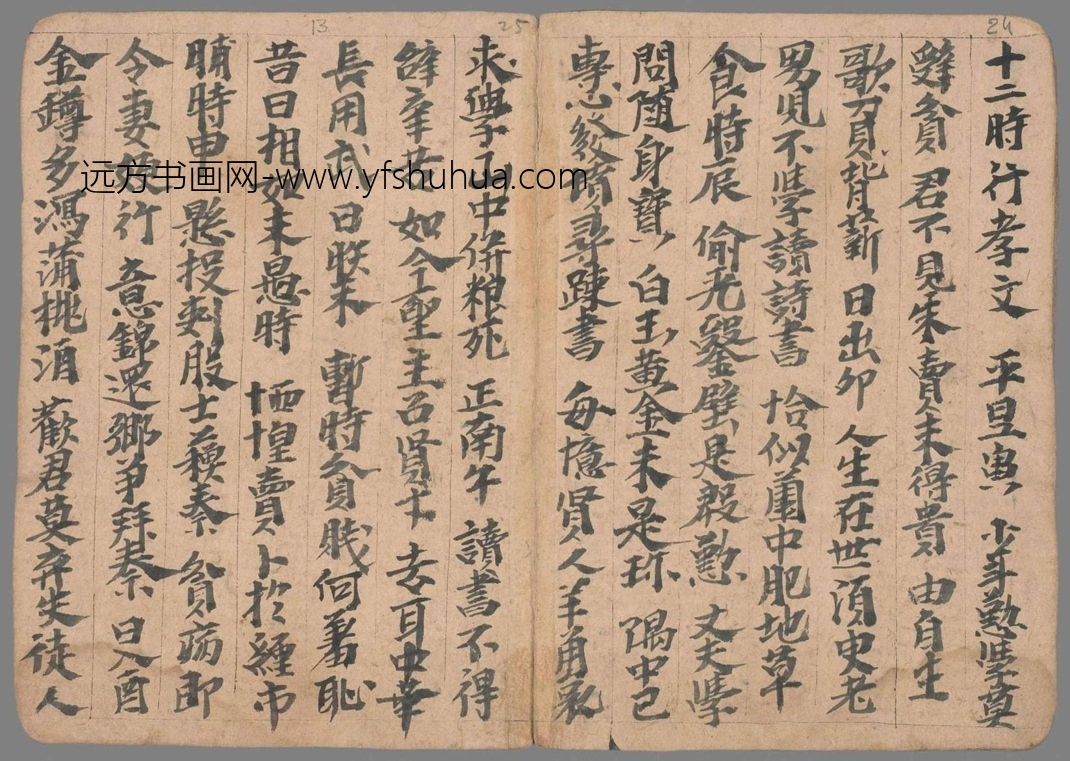 24
十二時行孝文 平旦寅 少年懃學莫
辤貧 君不見朱賣未得貴 由自生
歌負背薪 日出卯 人生在世須臾老
男兒不學讀詩書 恰似薗中肥地草
食時辰 偷光鑿壁是慇懃 丈夫學
問随身寶 白玉黄金未是珎 隅中巳
專心發憤尋踈書 每憶賢人羊角哀
25
求學山中併粮死 正南午 讀書不得
辤辛苦 如今聖主召賢才 去耳中華
長用武 日昳未 暫時貧賤何羞恥
13
昔日相如未愚時 恓惶賣卜於纏市
晡時申 懸投刺股士蘓秦 貧病即
令妻嫂行 意錦還鄉爭拜秦 日入酉
金罇多瀉蒲桃酒 歡君莫弃失徒人
远方书画网-www.yfshuhua.com